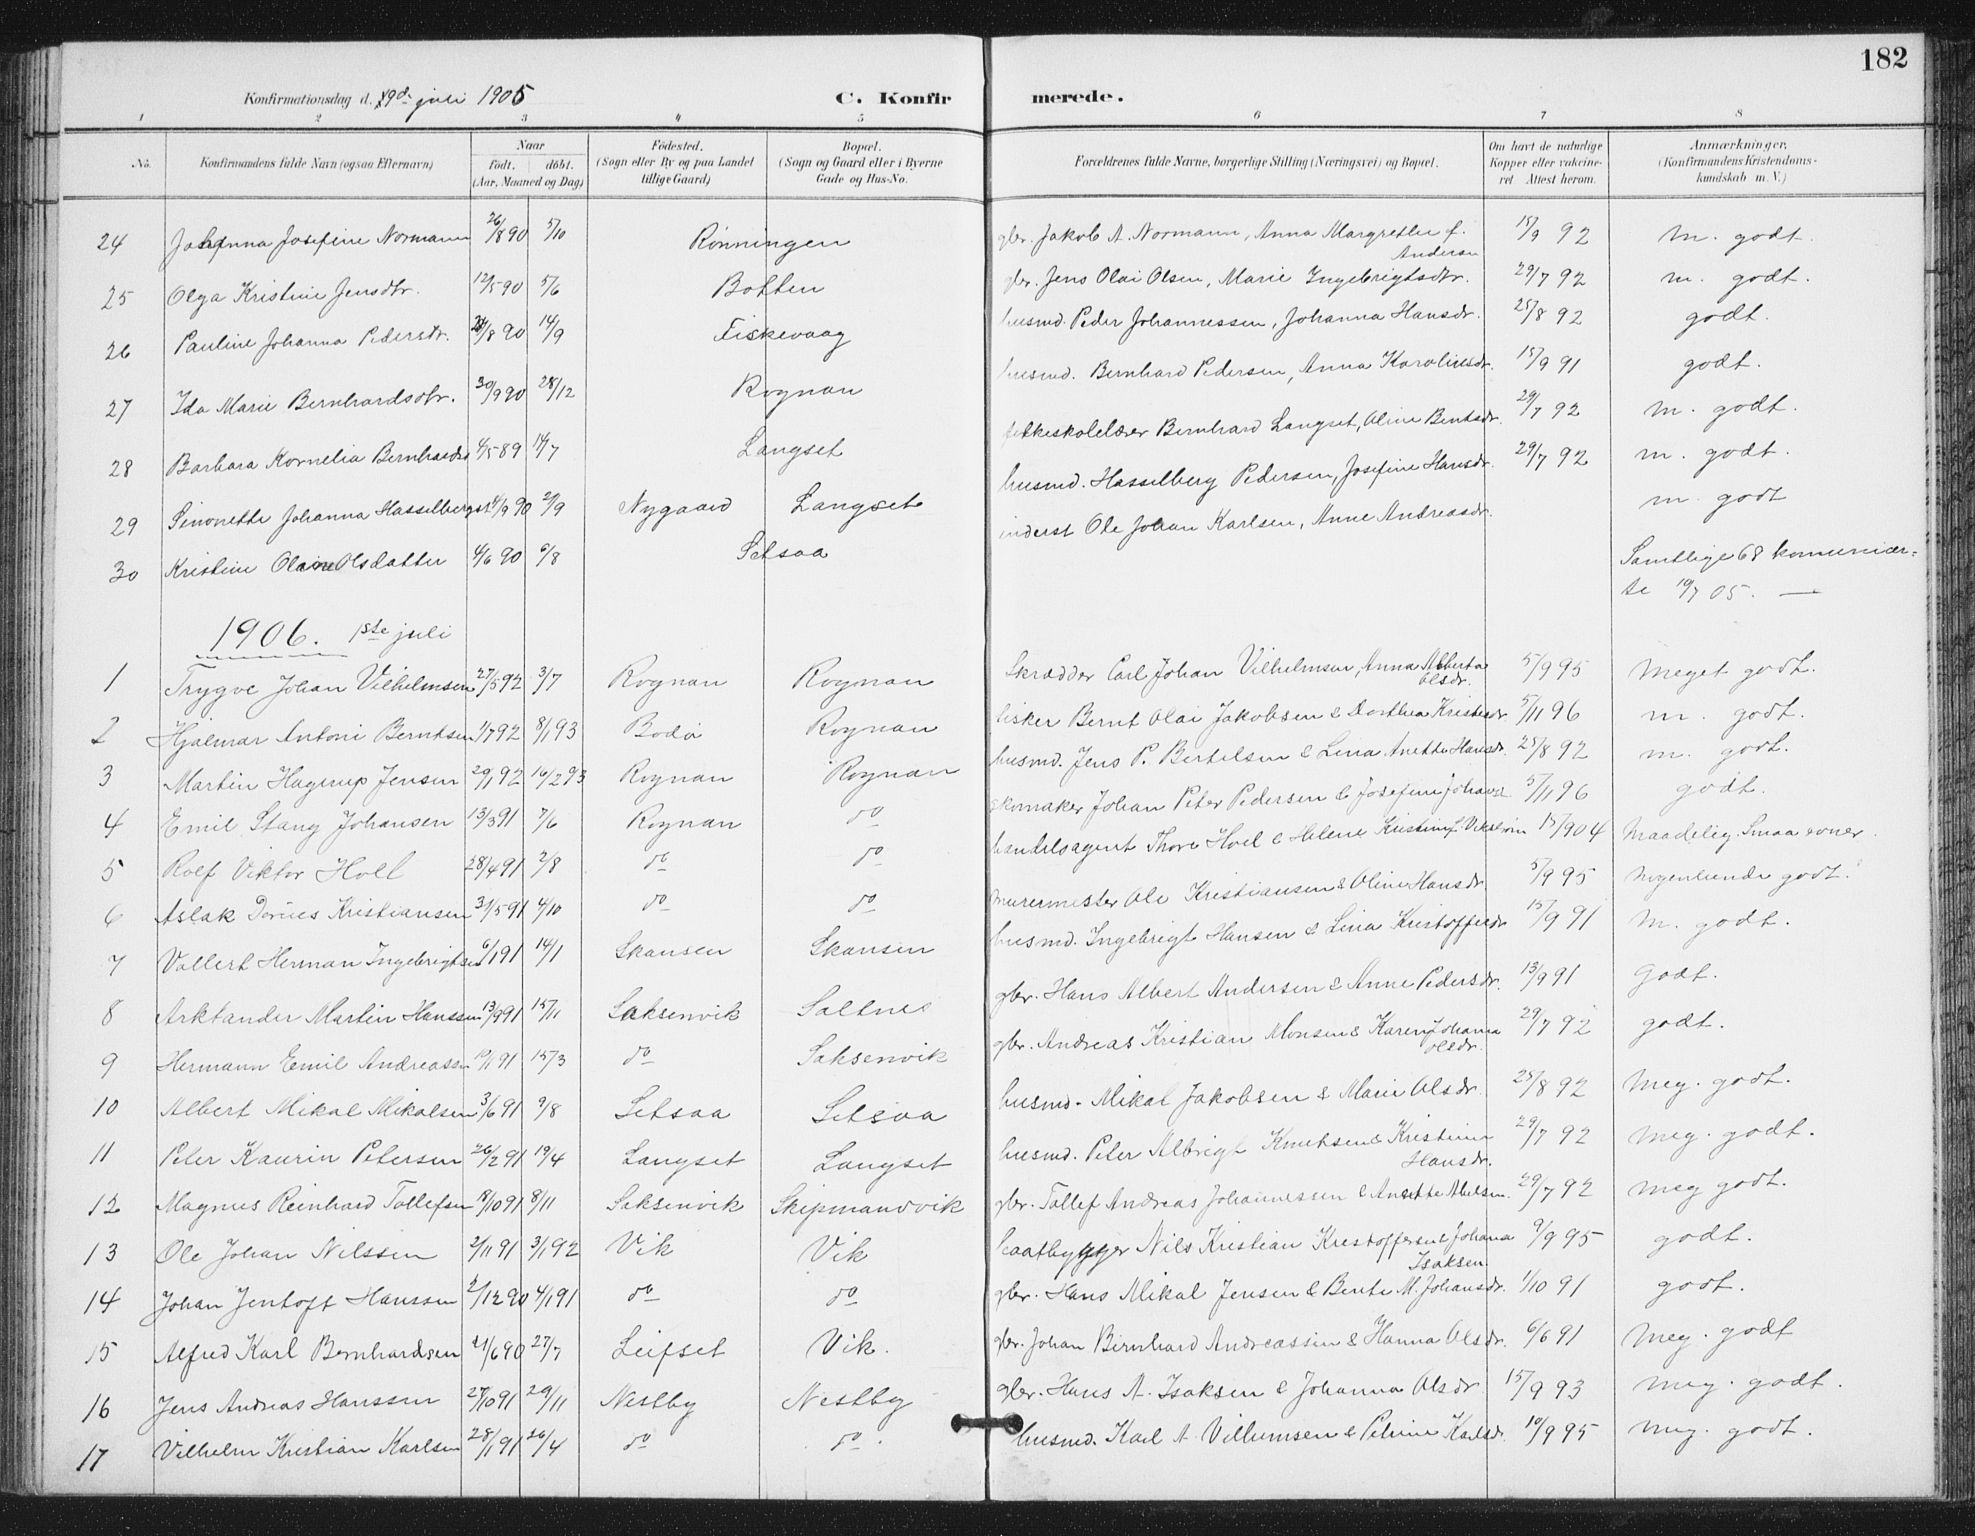 182
Konfirmationsdag d. 19de juli 1905 C. Konfirmerede.
1 2 3 4 5 6 7 8
No. Konfirmandens fulde Navn (ogsaa Efternavn) Naar født. døbt. (Aar, Maaned og Dag) Fødested. (Sogn eller By og paa Landet tillige Gaard) Bopæl. (Sogn og Gaard eller i Byerne Gade og Hus-No. Forældrenes fulde Navne, borgerlige Stilling (Næringsvei) og Bopæl. Om havt de naturlige Kopper eller vakcineret Attest herom. Anmærkninger. (Konfirmandens Kristendomskundskab m. V.)
24 Johanna Josefine Normann 26/8 90 5/10 Rönningen gbr. Jakob A. Normann, Anna Margrethe f. Andersen 15/9 92 m. godt.
25 Olga Kristine Jensdtr. 12/5 90 5/6 Botten gbr. Jens Olai Olsen, Marie Ingebrigtsdtr. 29/7 92 m. godt.
26 Pauline Johanna Pedersdtr. /8 90 14/9 Fiskevaag husmd. Peder Johannessen, Johanna Hansdr. 25/8 92 godt.
27 Ida Marie Bernhardsdtr. 30/9 90 28/12 Rognan husmd. Bernhard Pedersen, Anna Karolinsdr. 15/9 91 godt.
28 Barbara Kornelia Bernhardsd 4/5 89 14/7 Langset folkeskolelærer Bernhard Langset, Oline Bentsdr. 29/7 92 m. godt.
29 Simonette Johanna Hasselbergsd. 4/9 90 21/9 Nygaard Langset husmd. Hasselberg Pedersen, Josefine Hansdr. 29/7 92 m. godt.
30 Kristine Olaine Olsdatter 4/6 90 9/8 Setsaa inderst Ole Johan Karlsen, Anne Andreasdr. m. godt
Samtlige 68 komunicerte 19/7 05. —
1906. 1ste juli
1 Trygve Johan Vilhelmsen 27/5 92 3/7 Rognan Rognan Skrædder Carl Johan Vilhelmsen, Anna Alberta Olsdr. 5/9 95 Meget godt.
2 Hjalmar Antoni Berntsen 1/7 92 8/1 93 Bodö Rognan fisker Bernt Olai Jakobsen & Dorthea Kristesdr. 5/11 96 m. godt.
3 Martin Hagerup Jensen 29/1 92 16/2 93 Rognan Rognan husmd. Jens P. Bertelsen & Lina Anette Hansdr. 25/8 92 m. godt.
4 Emil Stang Johansen 13/3 91 7/6 Rognan do skomaker Johan Peter Pedersen & Josefine Johansd. 5/11 96 godt.
5 Rolf Viktor Hoel 28/4 91 2/8 do do handelsagent Thore Hoel & Helene Kristine f. Vikström 15/9 04 Maadelig. Smaa evner.
6 Aslak Dorius Kristiansen 31/5 91 4/10 do do murermester Ole Kristiansen & Oline Hansdr. 5/9 95 Nogenlunde godt.
7 Vollert Herman Ingebrigtsen 6/1 91 14/1 Skansen Skansen husmd. Ingebrigt Hansen & Lina Kristoffersdr 15/9 91 M. godt.
8 Arktander Martin Hanssen 13/9 91 15/11 Saksenvik Saltnes gbr. Hans Albert Andersen & Anne Pedersdr. 13/9 91 Godt.
9 Hermann Emil Andreassen 19/1 91 15/3 do Saksenvik gbr. Andreas Kristian Monsen & Karen Johanna Olsdr. 29/7 92 godt.
10 Albert Mikal Mikalsen 3/6 91 9/8 Setsaa Setsaa husmd. Mikal Jakobsen & Marie Olsdr. 25/8 92 Meg. godt.
11 Peter Kaurin Petersen 26/2 91 19/4 Langset Langset husmd. Peter Albrigt Knutsen & Kristine Hansdr. 29/7 92 meg. godt.
12 Magnus Reinhard Tollefsen 18/10 91 8/11 Saksenvik Skipmandvik gbr. Tollef Andreas Johannessen & Anette Nielsen. 29/7 92 meg godt.
13 Ole Johan Nilssen 2/11 91 3/1 92 Vik Vik baatbygger Nils Kristian Kristoffersen & Johana Isaksen 9/9 95 godt.
14 Johan Jentoft Hanssen 2/12 90 4/1 91 do do gbr. Hans Mikal Jensen & Bente M. Johansdr. 1/10 91 godt.
15 Alfred Karl Bernhardsen 21/6 90 27/7 Leifset Vik. gbr. Johan Bernhard Andreassen & Hanna Olsdr. 6/6 91 Meg. godt
16 Jens Andreas Hanssen 27/10 91 29/11 Nestby Nestby gbr. Hans A. Isaksen & Johanna Olsdr 15/9 93 meg. godt.
17 Vilhelm Kristian Karlsen 28/1 91 26/4 do do. husmd. Karl A. Vilhemsen & Petrine Karlsdr. 10/9 95 meg. godt.